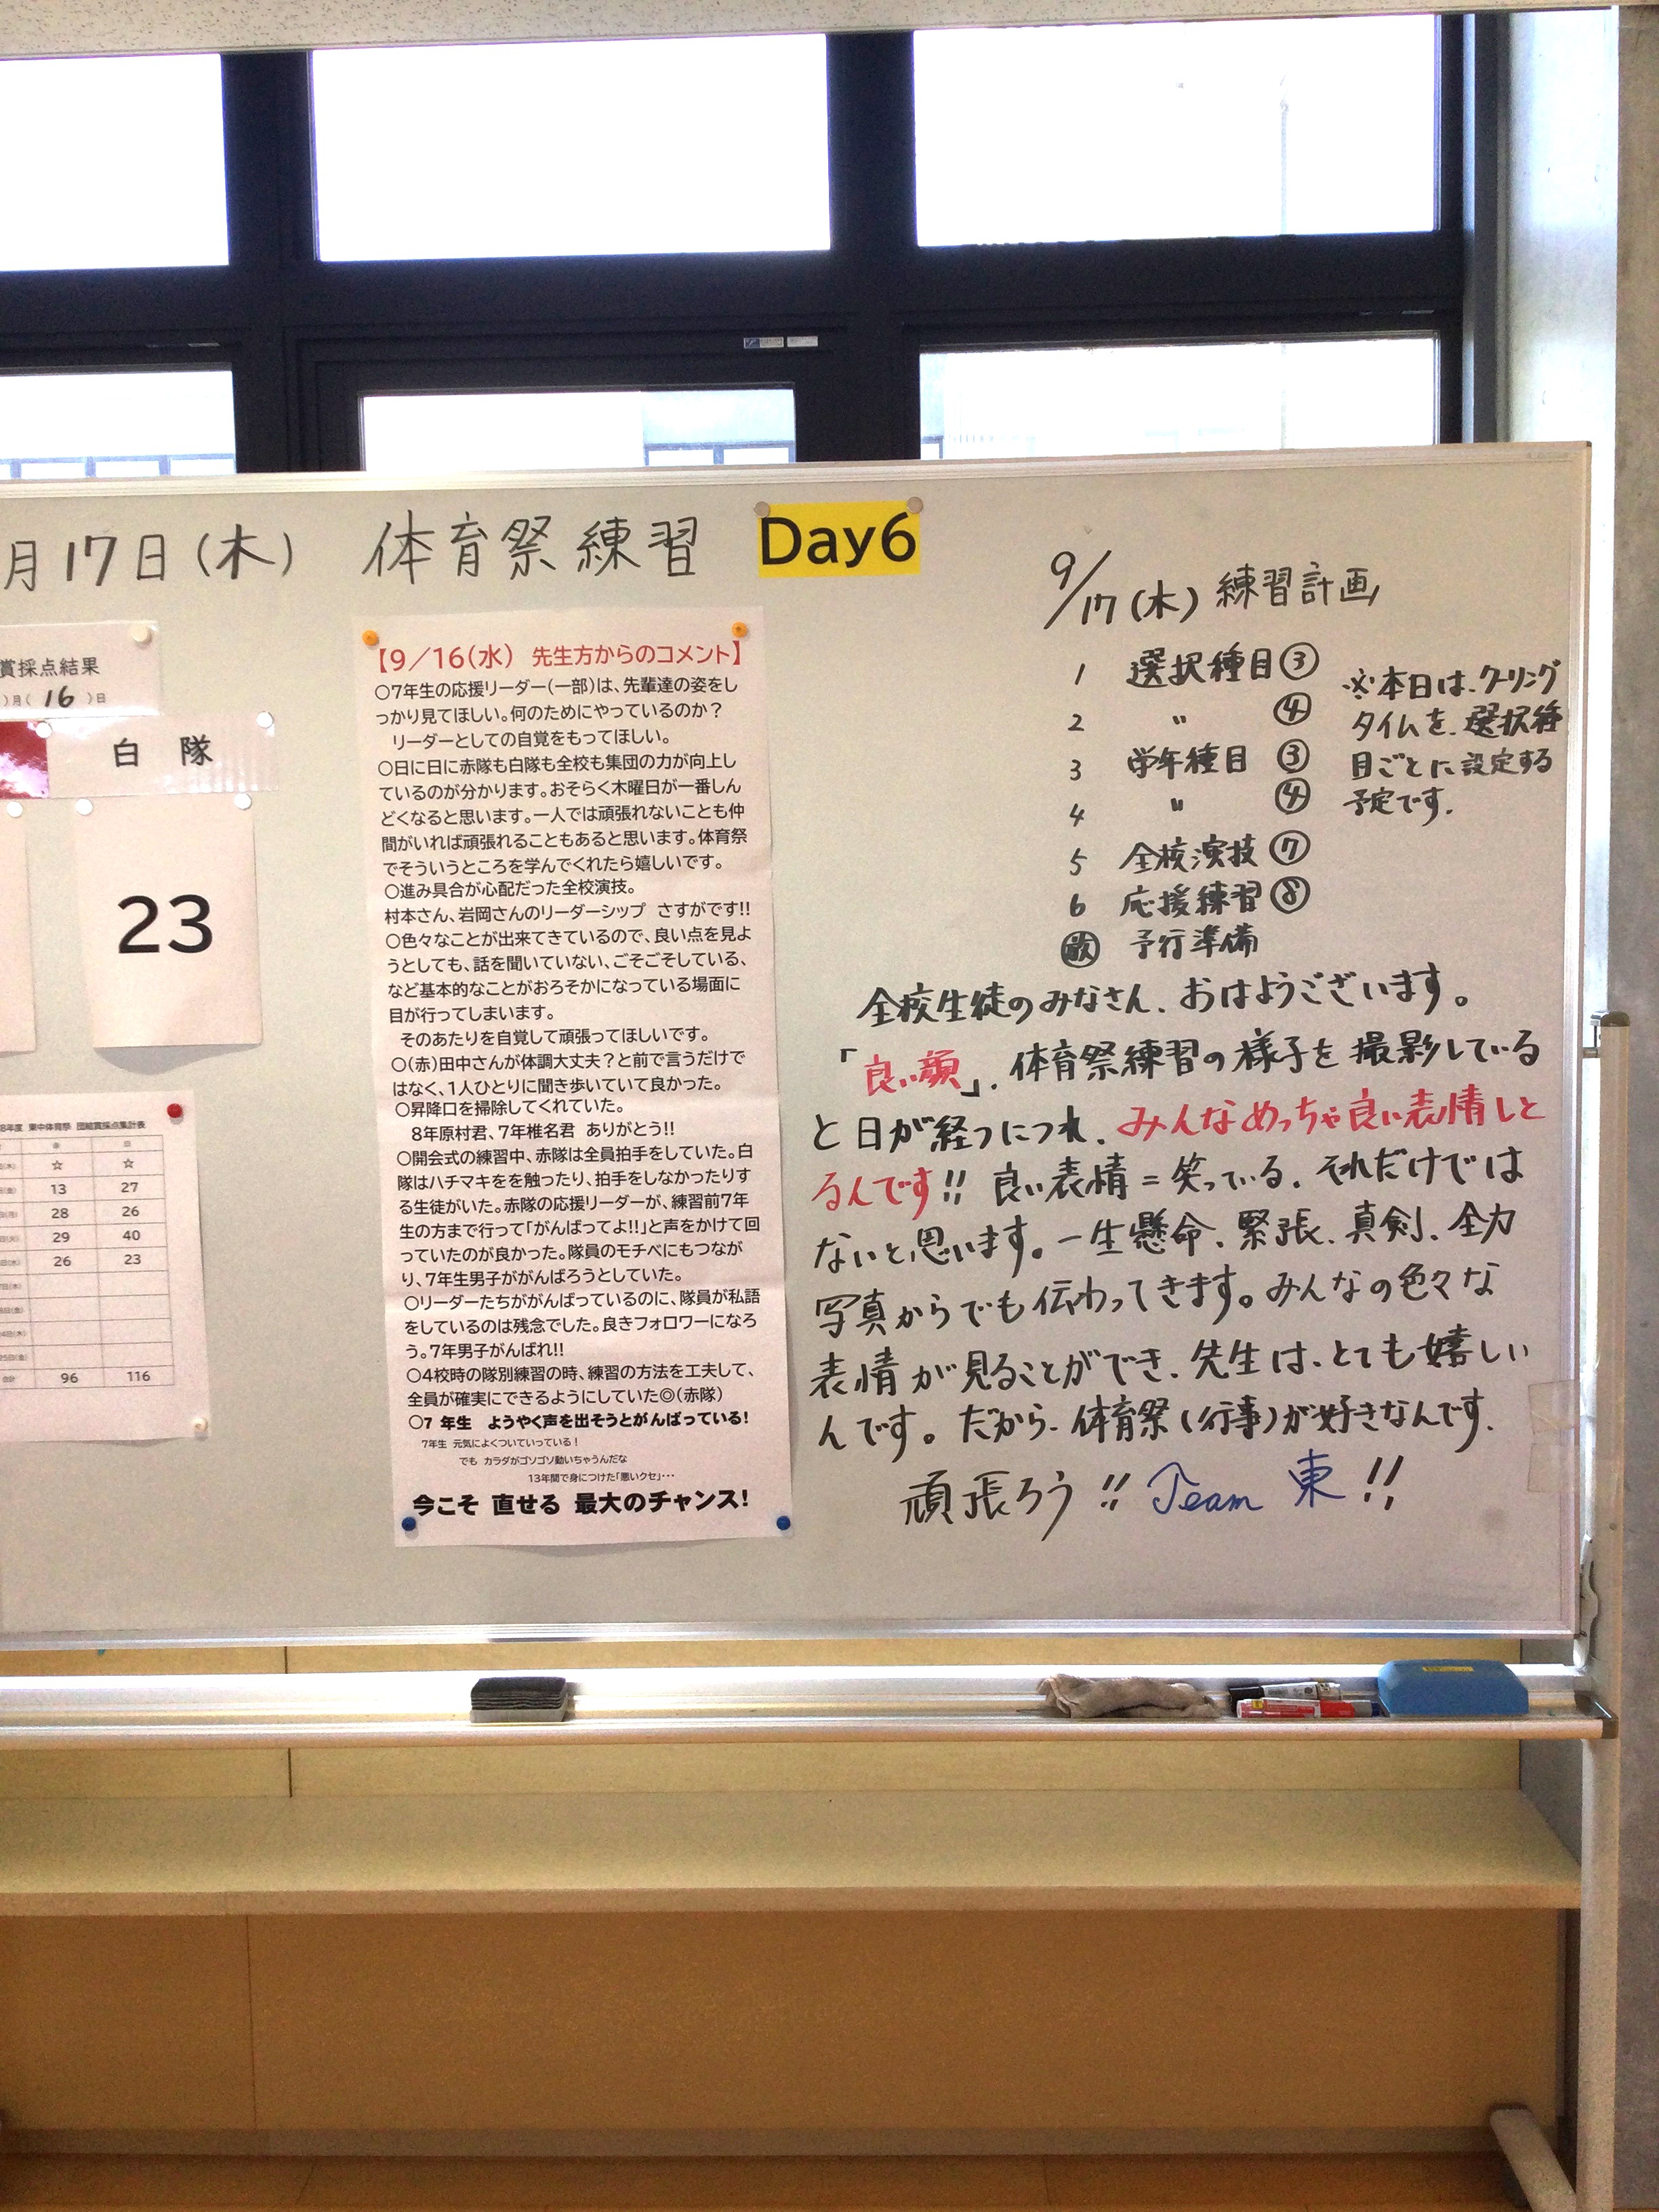 月17日(木) 体育祭練習 Day6
賞採点結果
)月( 16 )日
白 隊
23
8年度 東中体育祭 団結賞採点集計表
☆ ☆
13 27
28 26
29 40
26 23
合計 96 116
【9/16(水) 先生方からのコメント】
○7年生の応援リーダー(一部)は、先輩達の姿をし
っかり見てほしい。何のためにやっているのか？
リーダーとしての自覚をもってほしい。
○日に日に赤隊も白隊も全校も集団の力が向上し
ているのが分かります。おそらく木曜日が一番しん
どくなると思います。一人では頑張れないことも仲
間がいれば頑張れることもあると思います。体育祭
でそういうところを学んでくれたら嬉しいです。
○進み具合が心配だった全校演技。
村本さん、岩岡さんのリーダーシップ さすがです!!
○色々なことが出来てきているので、良い点を見よ
うとしても、話を聞いていない、ごそごそしている、
など基本的なことがおろそかになっている場面に
目が行ってしまいます。
そのあたりを自覚して頑張ってほしいです。
○(赤)田中さんが体調大丈夫？と前で言うだけで
はなく、1人ひとりに聞き歩いていて良かった。
○昇降口を掃除してくれていた。
8年原村君、7年椎名君 ありがとう!!
○開会式の練習中、赤隊は全員拍手をしていた。白
隊はハチマキをを触ったり、拍手をしなかったりす
る生徒がいた。赤隊の応援リーダーが、練習前7年
生の方まで行って「がんばってよ!!」と声をかけて回
っていたのが良かった。隊員のモチベにもつなが
り、7年生男子ががんばろうとしていた。
○リーダーたちががんばっているのに、隊員が私語
をしているのは残念でした。良きフォロワーになろ
う。7年男子がんばれ!!
○4校時の隊別練習の時、練習の方法を工夫して、
全員が確実にできるようにしていた◎(赤隊)
○7 年生 ようやく声を出そうとがんばっている!
7年生 元気によくついていっている!
でも カラダがゴソゴソ動いちゃうんだな
13年間で身につけた「悪いクセ」・・・
今こそ 直せる 最大のチャンス!
9/17(木) 練習計画
1 選択種目③
2 〃 ④
3 学年種目 ③
4 〃 ④
5 全校演技 ⑦
6 応援練習 ⑧
放 予行準備
※本日は、クーリング
タイムを、選択種
目ごとに設定する
予定です。
全校生徒のみなさん、おはようございます。
「良い顔」、体育祭練習の様子を撮影している
と日が経つにつれ、みんなめっちゃ良い表情しと
るんです!! 良い表情=笑っている、それだけでは
ないと思います。一生懸命、緊張、真剣、全力
写真からでも伝わってきます。みんなの色々な
表情が見ることができ、先生は、とても嬉しい
んです。だから、体育祭(行事)が好きなんです。
頑張ろう!! Team 東!!